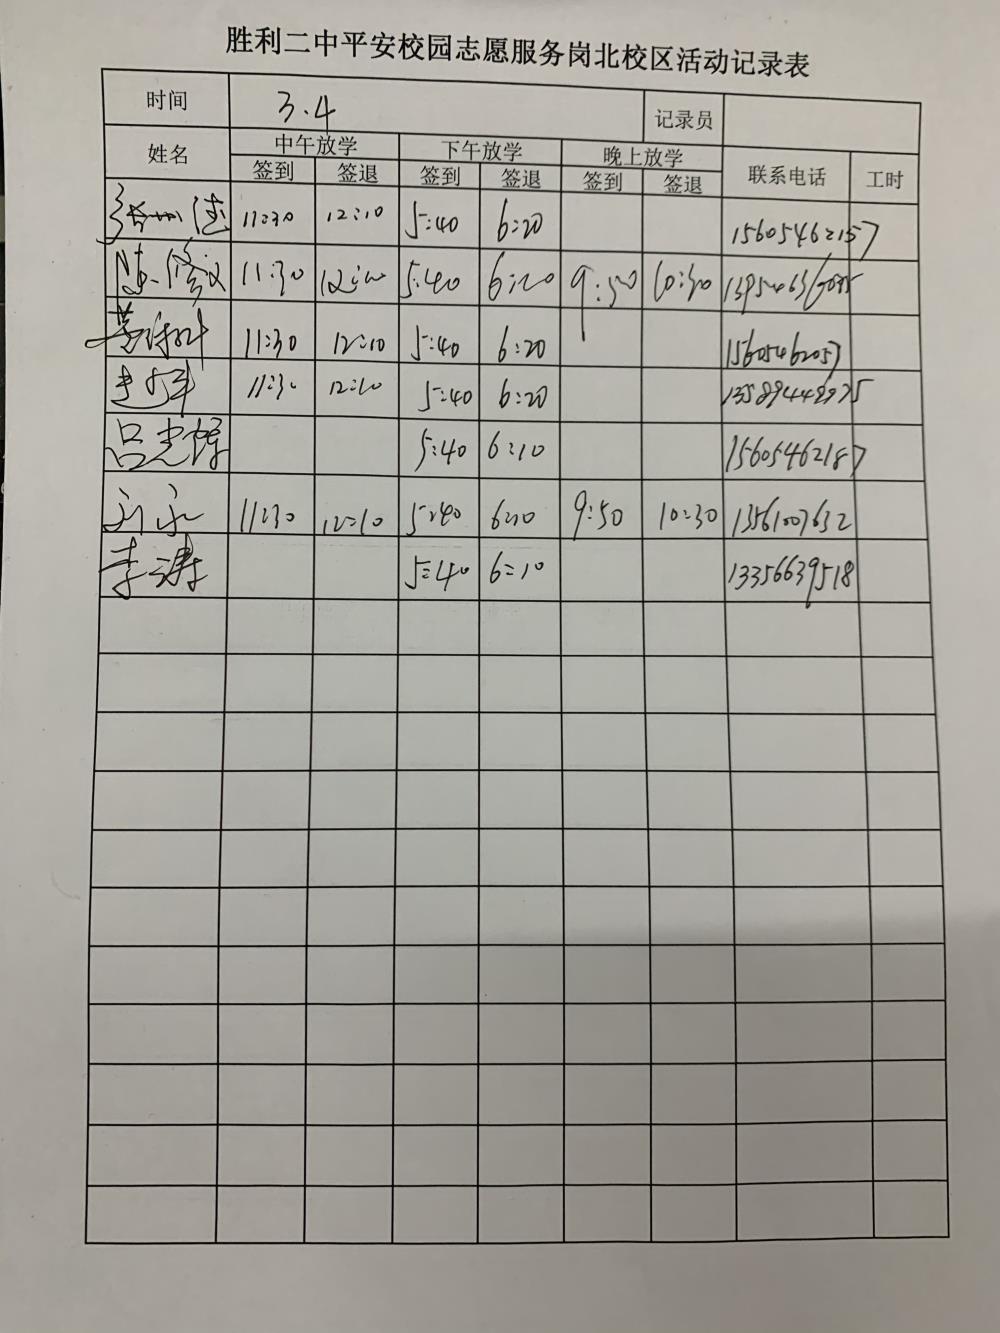 胜利二中平安校园志愿服务岗北校区活动记录表
时间 3.4 记录员
姓名 中午放学 下午放学 晚上放学 联系电话 工时
签到 签退 签到 签退 签到 签退
11:30 12:10 5:40 6:20 15605462157
11:30 5:40 6:20 9:50 10:30
11:30 12:10 5:40 6:20 15605462057
11:30 12:10 5:40 6:20
吕志锋 5:40 6:10 15605462187
刘永 11:30 12:10 5:40 9:50 10:30 13561007632
李涛 5:40 6:10 13356639518